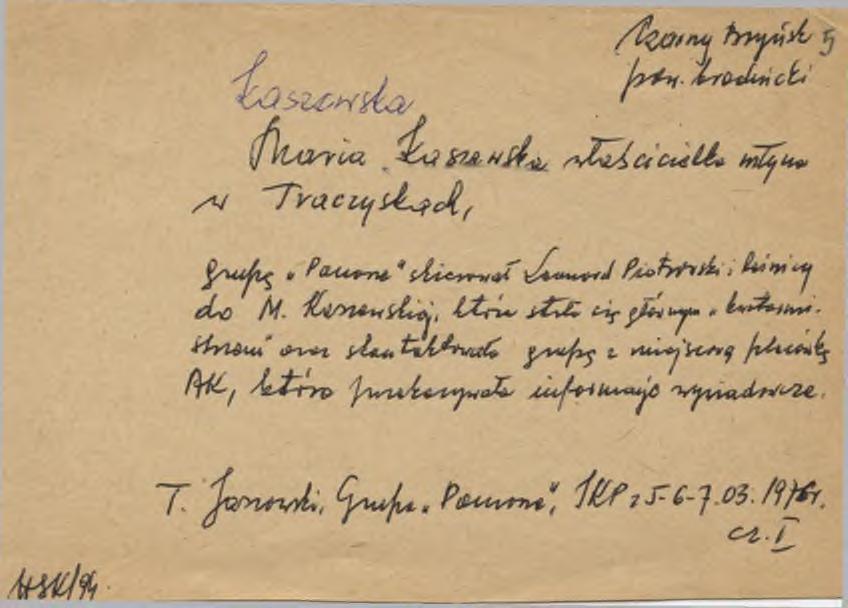 Czarny Bryńsk 5
pow. brodnicki
Łaszewska
Maria Łaszewska właścicielka młyna
w Traczyskach,
grupę „Pomona" skierował Leonard Piotrowski i leśnicy
do M. Łaszewskiej, która stała się głównym „kwatermi-
strzem" oraz skontaktowała grupę z miejscową placówką
AK, która przekazywała informacje wywiadowcze.
T. Jaszowski, Grupa „Pomona", IKP z 5-6-7.03.1976r.
cz. I
WSK/94